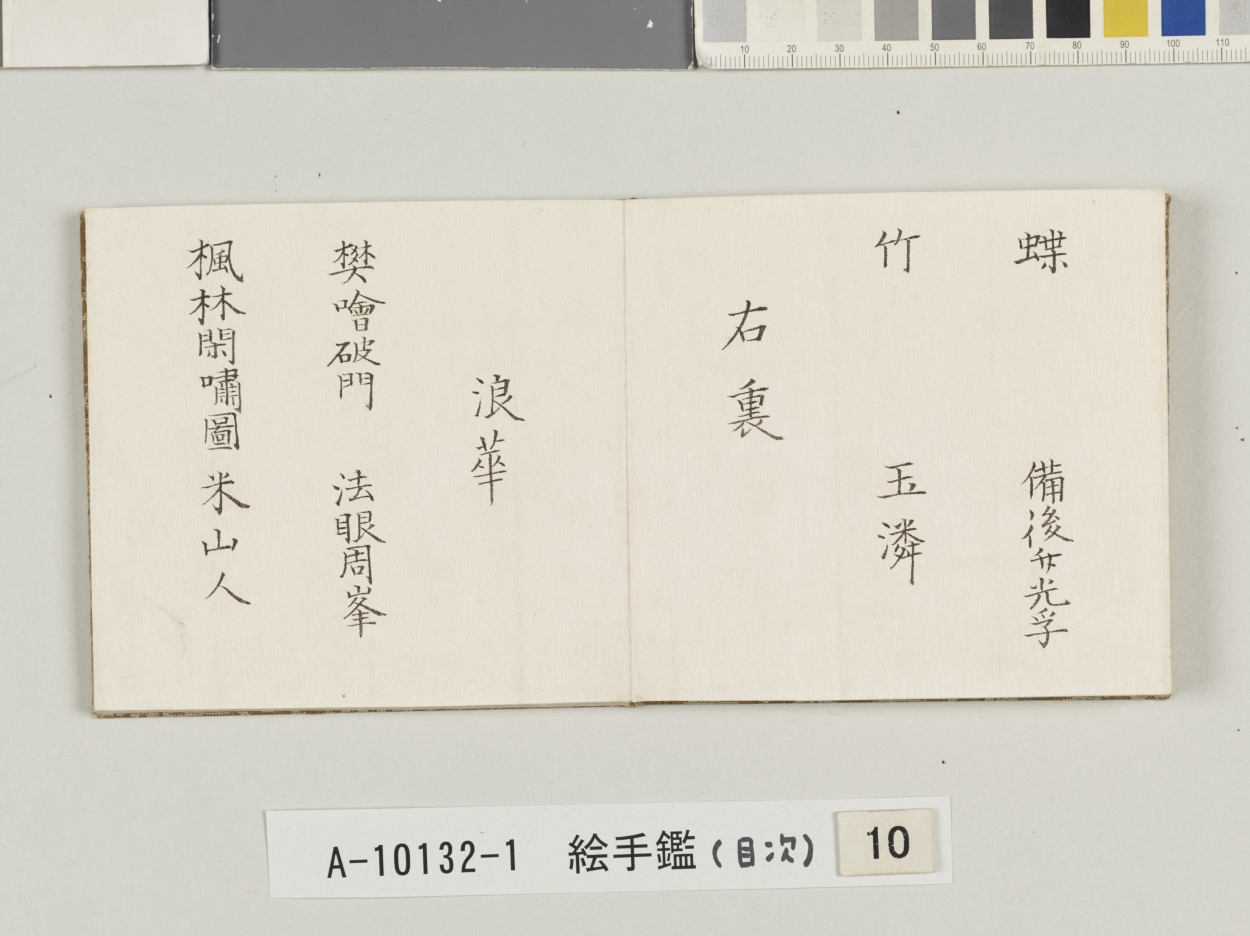 蝶 備後廿光孚
竹 玉潾
右裏
浪華
樊噲破門 法眼周峯
楓林閑嘯圖 米山人
A-10132-1 絵手鑑(目次) 10
10 20 30 40 50 60 70 80 90 100 110